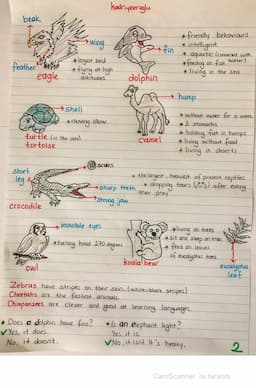 beak
wing
feather
eagle
* largest bird
* flying at high
altitudes
fin
dolphin
* friendly behaviours
* intelligent
* aquatic (connected with
water)
* feeding on fish
* living in the sea
shell
* moving slow
turtle (in the sea)
tortoise
hump
camel
* without water for a week
* 3 stomachs
* holding fat in humps
* living without food
* living in deserts
scales
short
leg
sharp teeth
strong jaw
crocodile
* the largest, heaviest of present reptiles
* dropping tears after eating
their prey
immobile eyes
* turning head 270 degrees
owl
koala bear
* living on trees
* sit and sleep on trees
* feed on leaves
of eucalyptus trees
eucalyptus
leaf
Zebras have stripes on their skin. (white-black stripes)
Cheetahs are the fastest animals.
Chimpanzees are clever and good at learning languages.
* Does a dolphin have fins?
Yes, it does.
No, it doesn't.
* Is an elephant light?
Yes, it is.
No, it isn't. It's heavy.
2
CamScanner ile tarandı